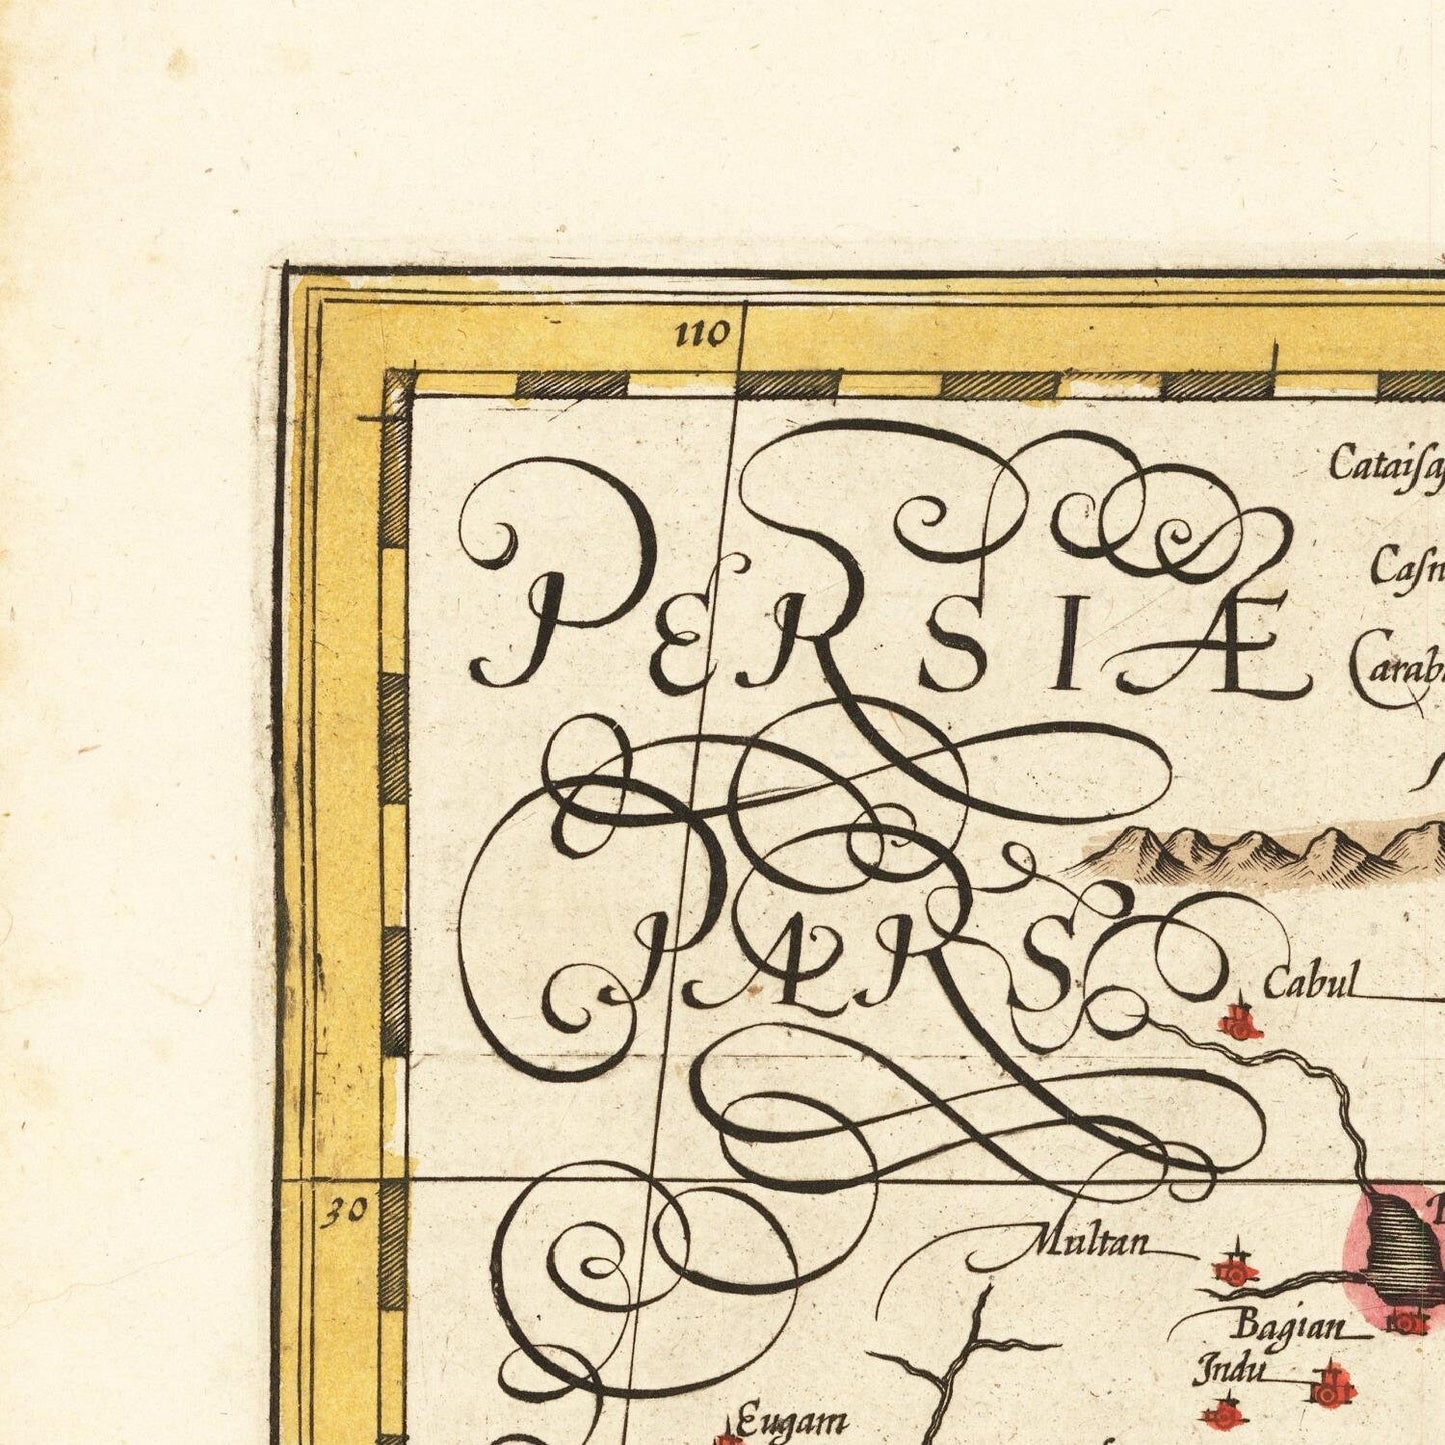 110
Cataiſa
PERSIÆ
Caſn
Carab
PARS
Cabul
30
Multan
Bagian
Indu
Eugam